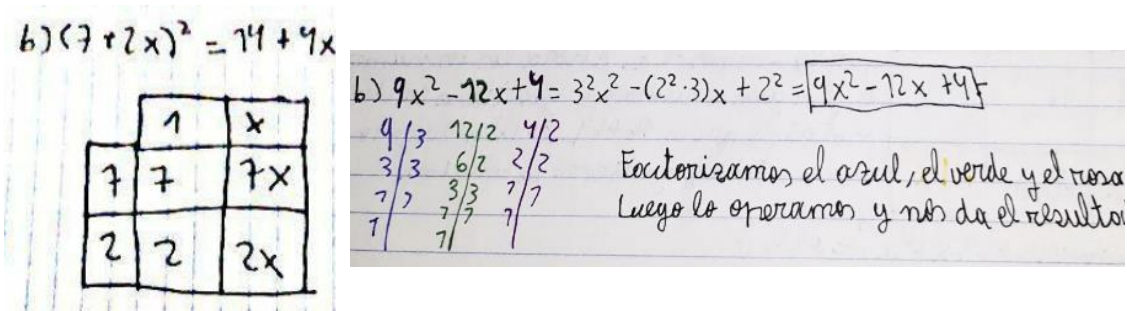 b)(7+2x)² = 14 + 4x
1 x
7 7 7x
2 2 2x
b) 9x² - 12x + 4 = 3²x² - (2²·3)x + 2² = 9x² - 12x + 4
9/3 12/2 4/2
3/3 6/2 2/2
1/1 3/3 1/1
1 1/1 1
1
Factorizamos el azul, el verde y el rosa
Luego lo operamos y nos da el